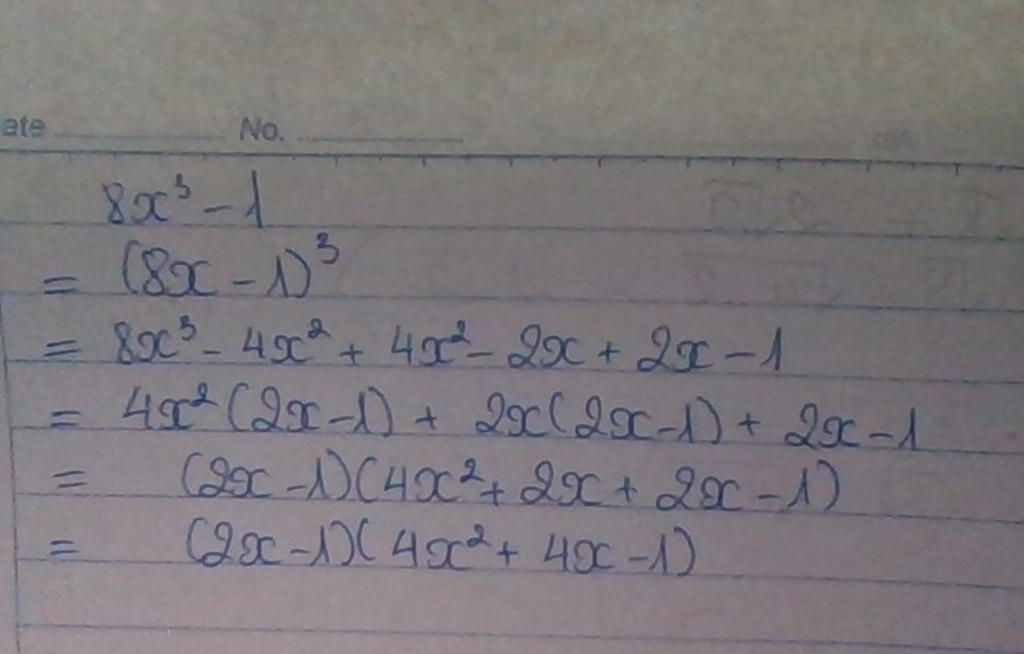 ate No.
8x³ - 1
= (8x - 1)³
= 8x³ - 4x² + 4x² - 2x + 2x - 1
= 4x² (2x - 1) + 2x(2x - 1) + 2x - 1
= (2x - 1)(4x² + 2x + 2x - 1)
= (2x - 1)(4x² + 4x - 1)